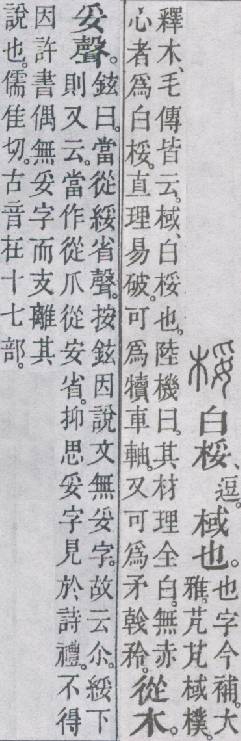 桵 白桵、逗。棫也。也字今補。大
雅。芃芃棫樸。
釋木、毛傳皆云。棫、白桵也。陸機曰。其材理全白。無赤
心者爲白桵。直理易破。可爲犢車軸。又可爲矛戟矜。從木。
妥聲。鉉曰。當從綏省聲。按鉉因說文無妥字。故云尒。綏下
則又云。當作從爪從安省。抑思妥字見於詩禮。不得
因許書偶無妥字而支離其
說也。儒隹切。古音在十七部。